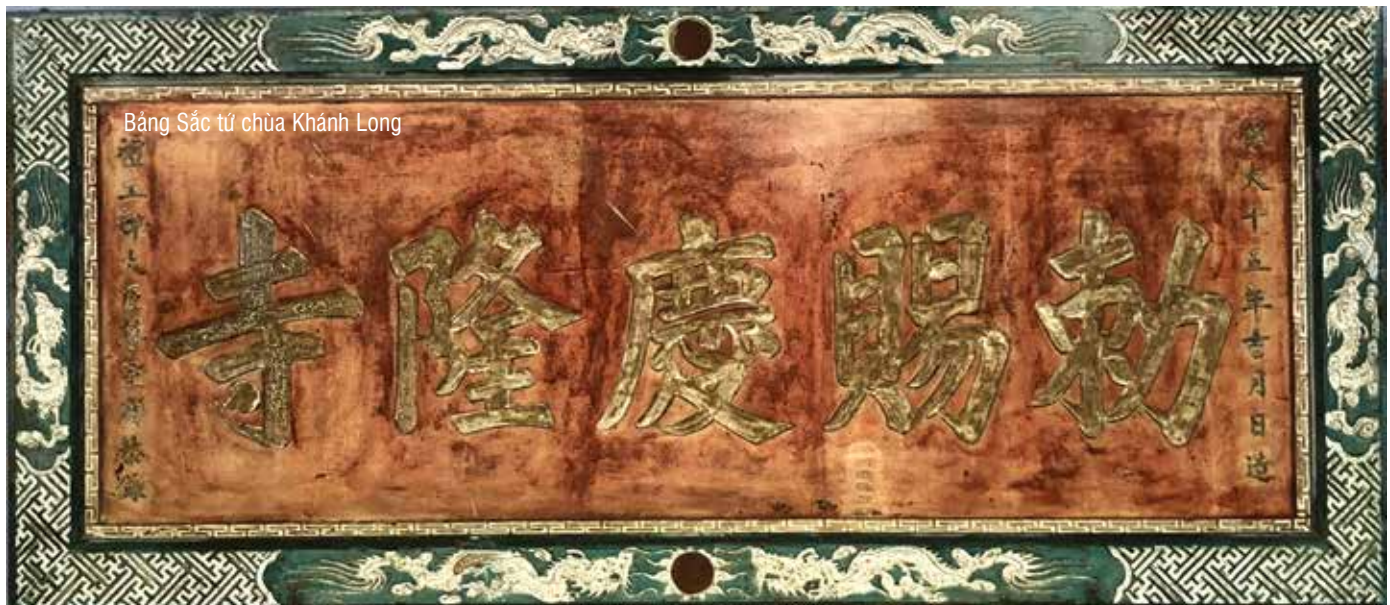 Bảng Sắc tứ chùa Khánh Long
保大十五年吉月日造
勅賜慶隆寺
禮工部大